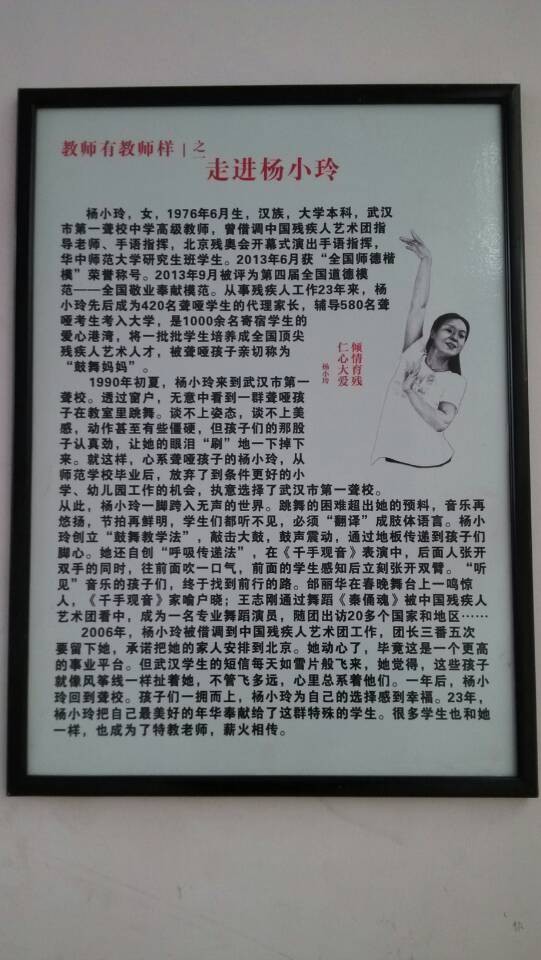 教师有教师样 | 之一 走进杨小玲
杨小玲，女，1976年6月生，汉族，大学本科，武汉
市第一聋校中学高级教师，曾借调中国残疾人艺术团指
导老师、手语指挥，北京残奥会开幕式演出手语指挥，
华中师范大学研究生班学生。2013年6月获“全国师德楷
模”荣誉称号。2013年9月被评为第四届全国道德模
范——全国敬业奉献模范。从事残疾人工作23年来，杨
小玲先后成为420名聋哑学生的代理家长，辅导580名聋
哑考生考入大学，是1000余名寄宿学生的
爱心港湾，将一批批学生培养成全国顶尖
残疾人艺术人才，被聋哑孩子亲切称为
“鼓舞妈妈”。
倾情育残
仁心大爱
杨小玲
1990年初夏，杨小玲来到武汉市第一
聋校。透过窗户，无意中看到一群聋哑孩
子在教室里跳舞。谈不上姿态，谈不上美
感，动作甚至有些僵硬，但孩子们的那股
子认真劲，让她的眼泪“刷”地一下掉下
来。就这样，心系聋哑孩子的杨小玲，从
师范学校毕业后，放弃了到条件更好的小
学、幼儿园工作的机会，执意选择了武汉市第一聋校。
从此，杨小玲一脚跨入无声的世界。跳舞的困难超出她的预料，音乐再
悠扬，节拍再鲜明，学生们都听不见，必须“翻译”成肢体语言。杨小
玲创立“鼓舞教学法”，敲击大鼓，鼓声震动，通过地板传递到孩子们
脚心。她还自创“呼吸传递法”，在《千手观音》表演中，后面人张开
双手的同时，往前面吹一口气，前面的学生感知后立刻张开双臂。“听
见”音乐的孩子们，终于找到前行的路。邰丽华在春晚舞台上一鸣惊
人，《千手观音》家喻户晓；王志刚通过舞蹈《秦俑魂》被中国残疾人
艺术团看中，成为一名专业舞蹈演员，随团出访20多个国家和地区……
2006年，杨小玲被借调到中国残疾人艺术团工作，团长三番五次
要留下她，承诺把她的家人安排到北京。她动心了，毕竟这是一个更高
的事业平台。但武汉学生的短信每天如雪片般飞来，她觉得，这些孩子
就像风筝线一样扯着她，不管飞多远，心里总系着他们。一年后，杨小
玲回到聋校。孩子们一拥而上，杨小玲为自己的选择感到幸福。23年，
杨小玲把自己最美好的年华奉献给了这群特殊的学生。很多学生也和她
一样，也成为了特教老师，薪火相传。